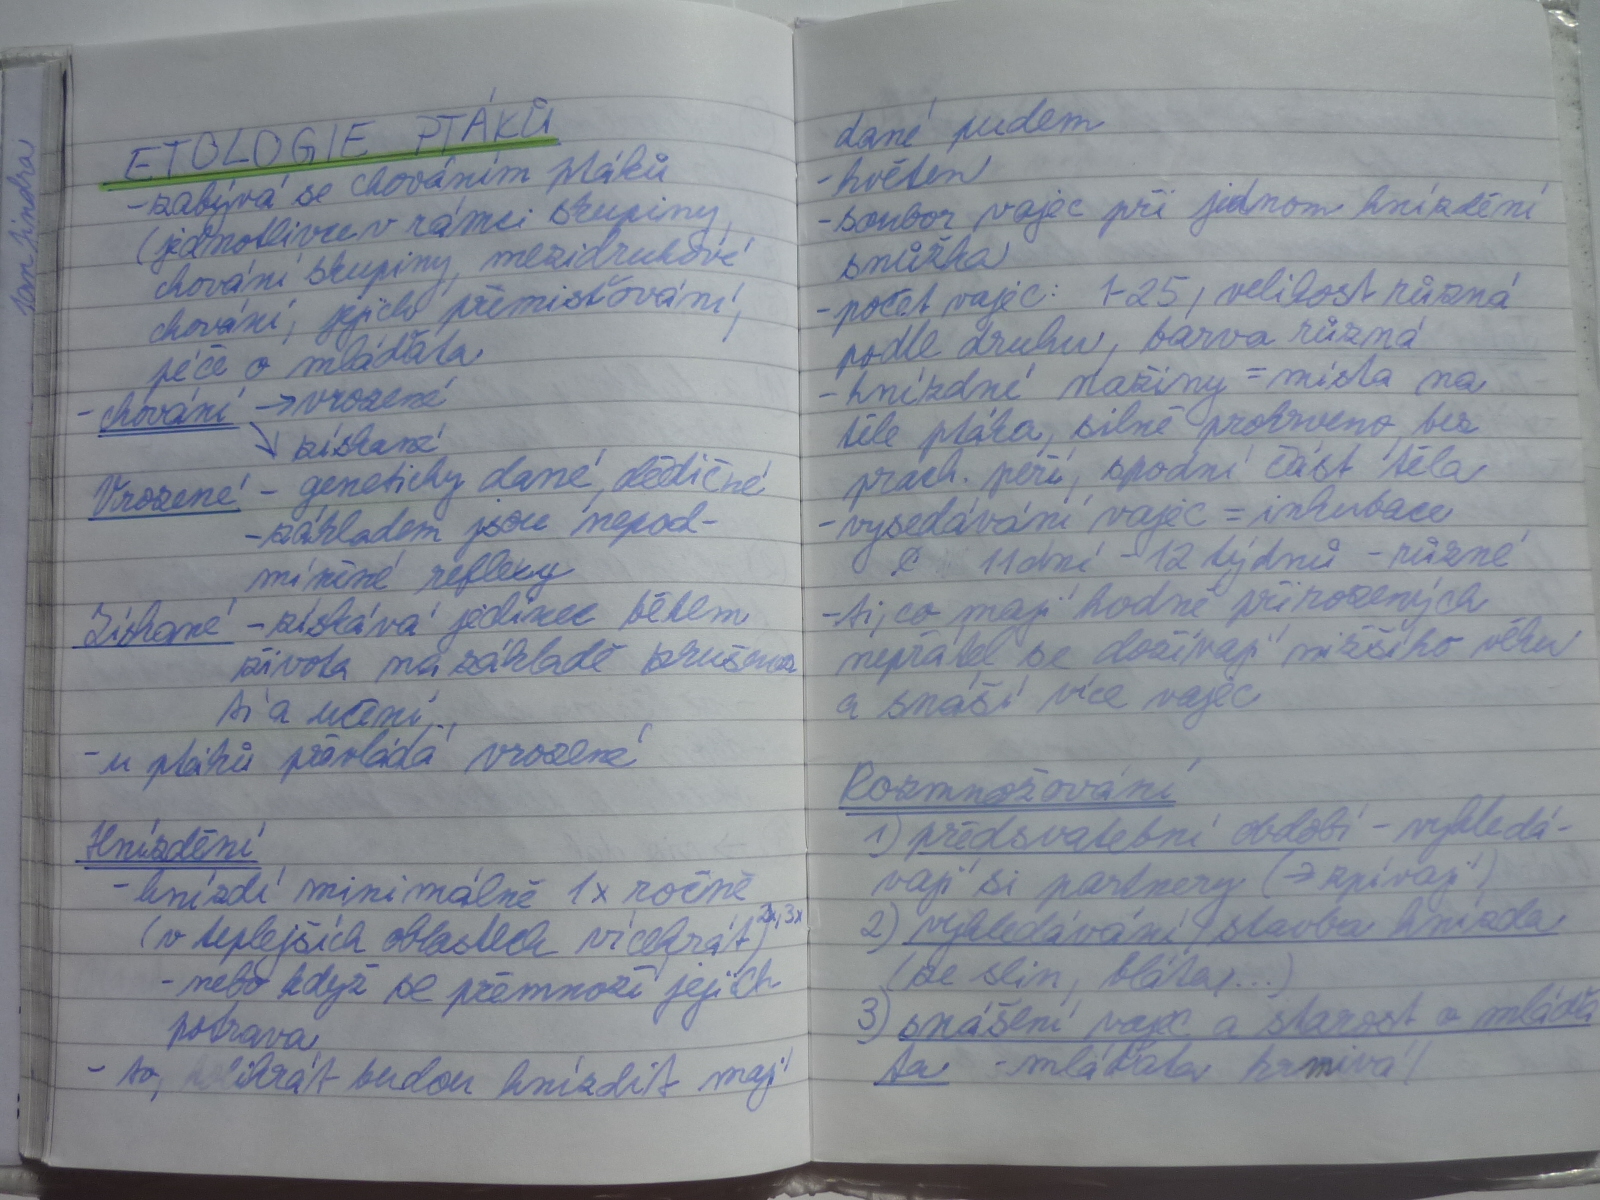 ETOLOGIE PTÁKŮ
- zabývá se chováním ptáků
(jednotlivce v rámci skupiny,
chování skupiny, mezidruhové
chování, jejich přemisťování,
péče o mláďata
- chování → vrozené
↘ získané
Vrozené - geneticky dané, dědičné
- základem jsou nepod-
míněné reflexy
Získané - získává jedinec během
života na základě zkušenos
tí a učení..
- u ptáků převládá vrozené
Hnízdění
- hnízdí minimálně 1x ročně
(v teplejších oblastech vícekrát) 2x, 3x
- nebo když se přemnoží jejich
potrava
- to, kolikrát budou hníздit mají
dané pudem
- květen
- soubor vajec při jednom hnízdění
snůžka
- počet vajec: 1-25, velikost různá
podle druhu, barva různá
- hnízdné nažiny = místa na
těle ptáka, silně prokrveno, bez
prach. peří, spodní část těla
- vysedávání vajec = inkubace
11 dní - 12 týdnů - různé
- ti, co mají hodně přirozených
nepřátel se dožívají nižšího věku
a snáší více vajec
Rozmnožování
1) předsvatební období - vyhledá-
vají si partnery (→ zpívají)
2) vyhledávání, stavba hnízda
(ze slin, bláta,...)
3) snášení vajec a starost o mláďa
ta - mláďata krmivá/
Jan Jindra